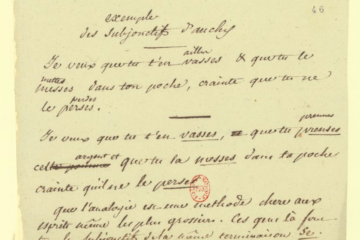 46
exemple
des Subjonctifs d'auch
ailles
Je veux que tu t'en vasses & que tu le
mettes
messes dans ton poche, crainte que tu ne
perdes
le perses.
Je veux que tu t'en vasses, que tu prenses
prennes
argent et
que tu la messes dans ta poche
crainte qu'il ne le perses
que l'analogie est une methode chere aux
esprits même les plus grossiers. Des que la
subjonctifs de la même terminaison